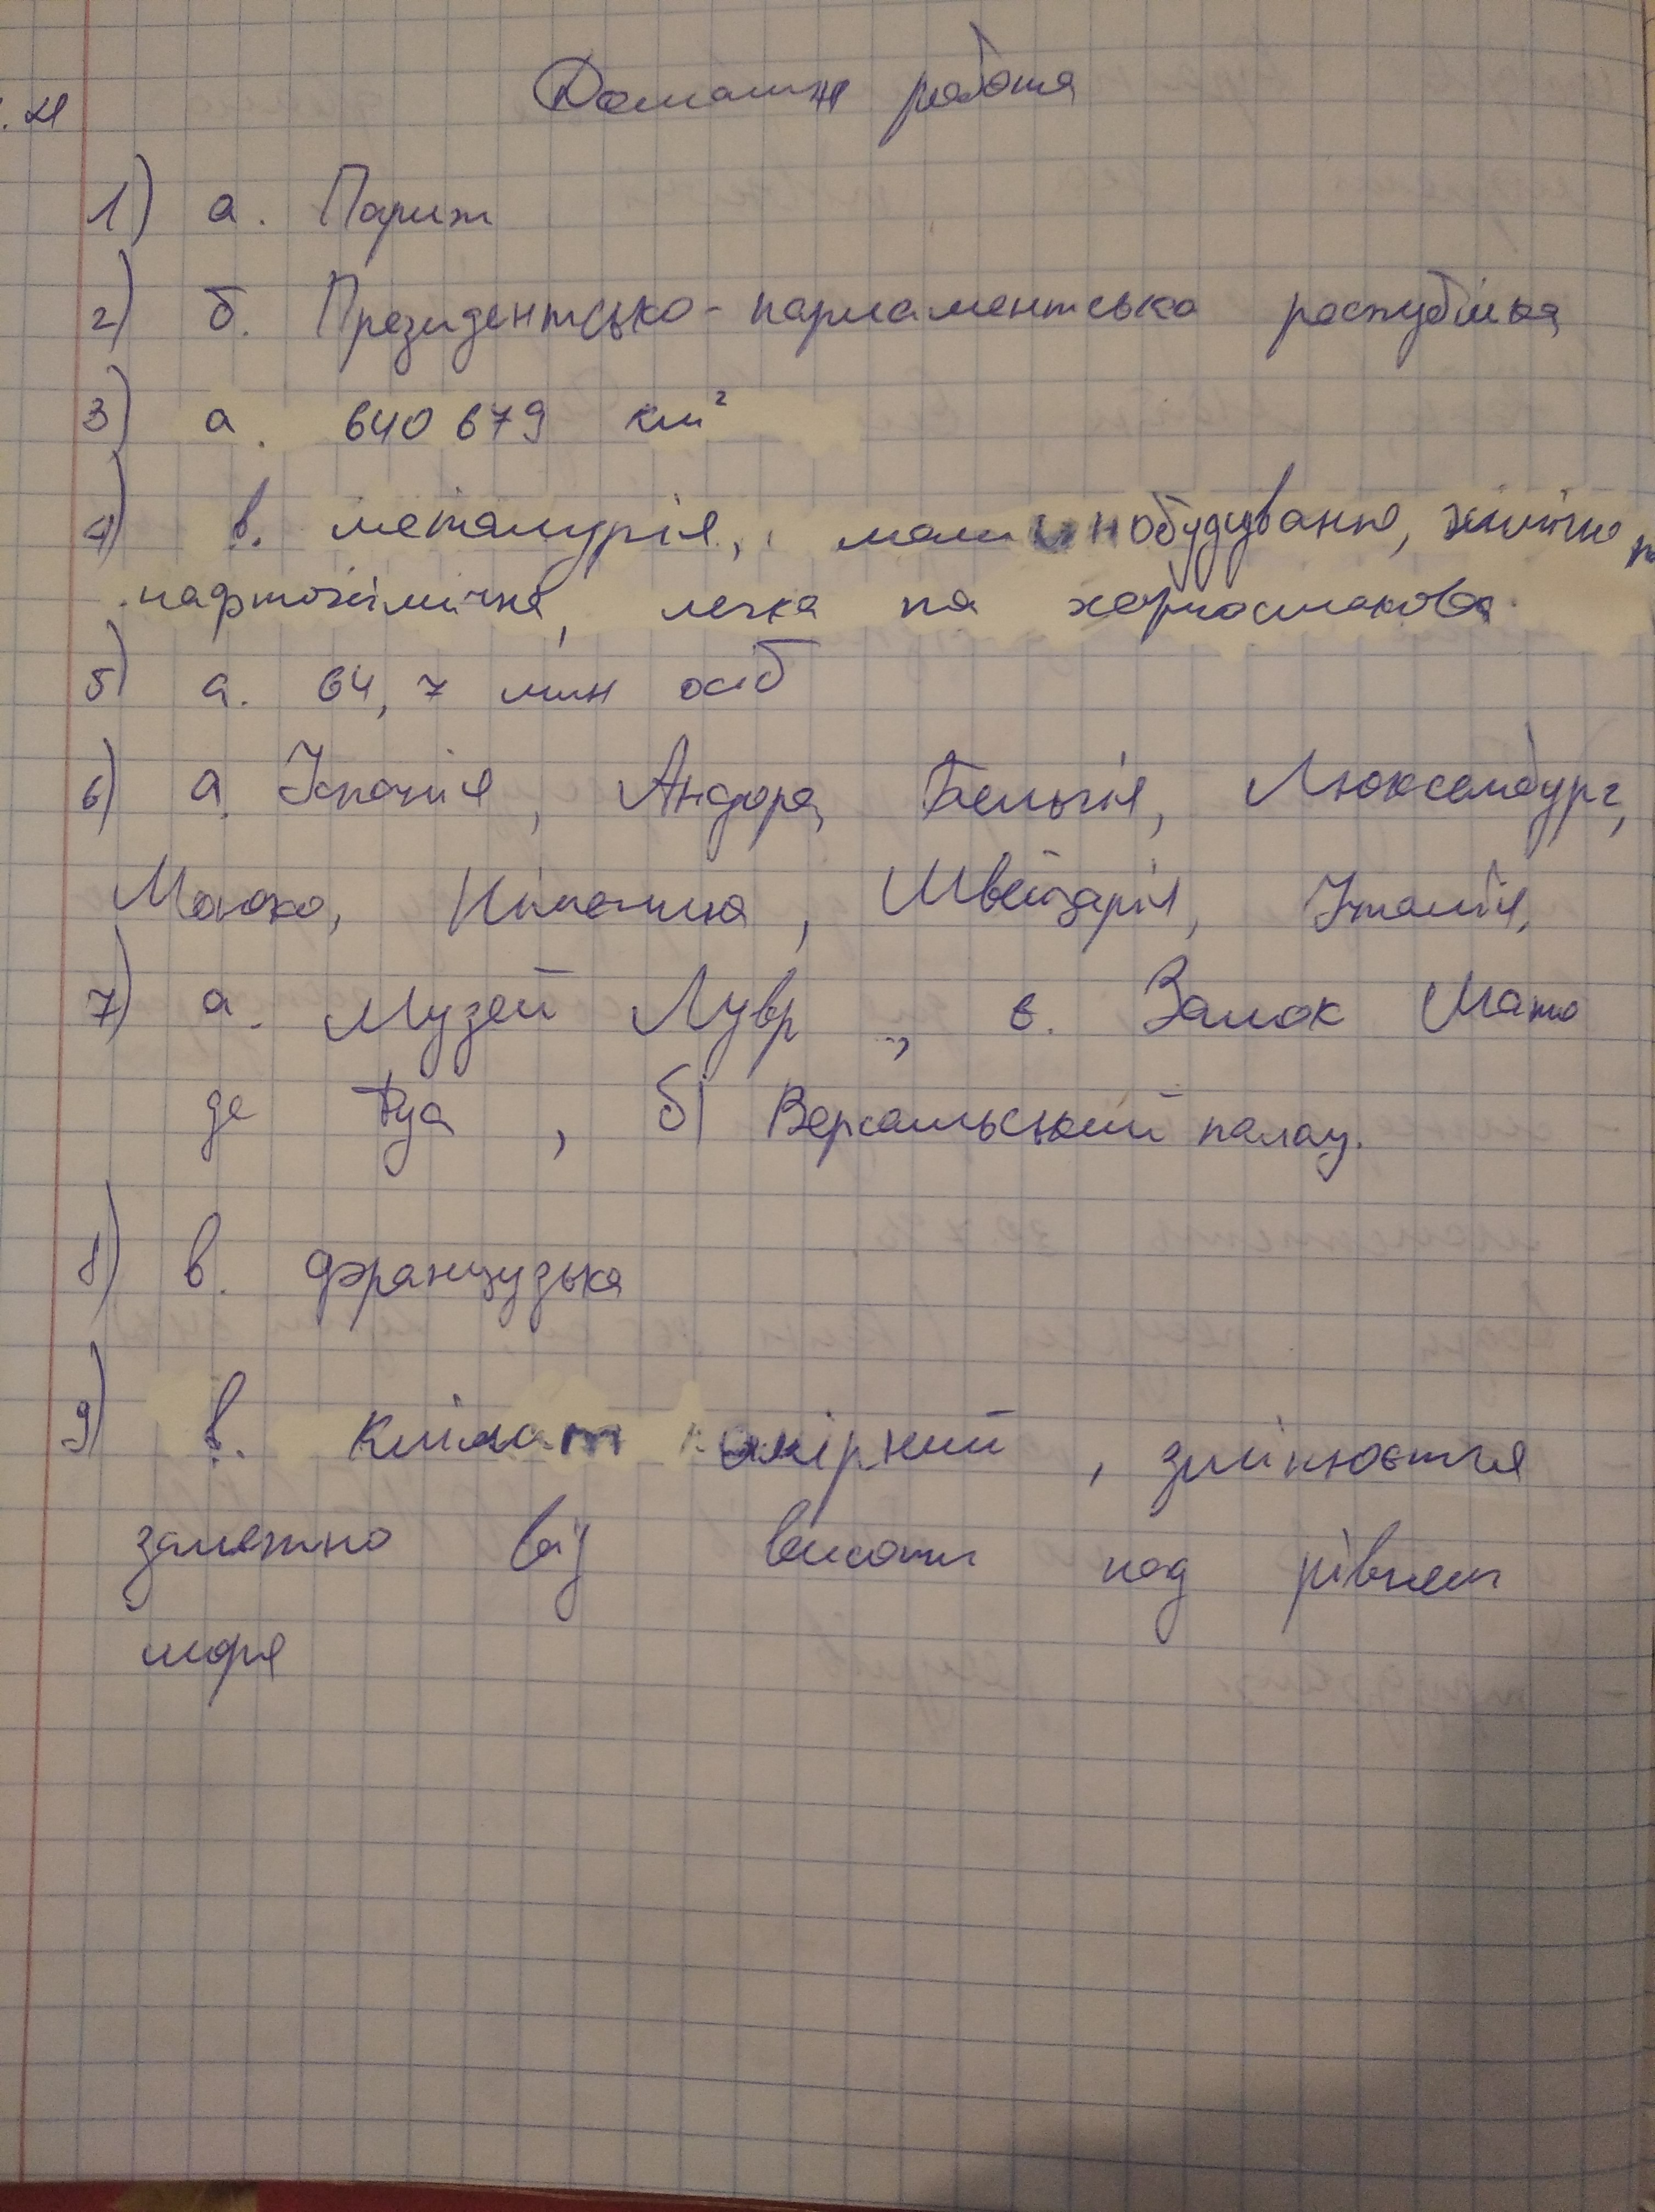 Домашня робота
1) а. Париж
2) б. Президентсько-парламентська республіка
3) а. 640 679 км²
4) в. металургія, машинобудування, хімічна
нафтохімічна, легка та харчосмакова.
5) а. 64,7 млн осіб
6) а. Іспанія, Андора, Бельгія, Люксембург,
Монако, Німеччина, Швейцарія, Італія,
7) а. Музей Лувр, в. Замок Шато
де Туа, б) Версальський палац.
8) в. французька
9) в. Клімат помірний, змінюється
залежно від висоти над рівнем
моря